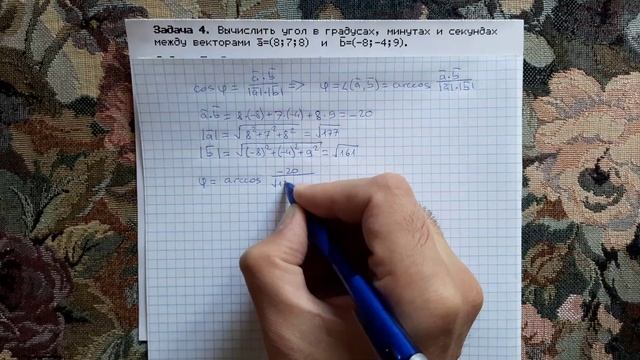 Задача 4. Вычислить угол в градусах, минутах и секундах
между векторами a̅=(8;7;8) и b̅=(-8;-4;9).
cos φ = a̅·b̅ / |a̅|·|b̅| => φ = ∠(a̅,b̅) = arccos a̅·b̅ / |a̅|·|b̅|
a̅·b̅ = 8·(-8)+7·(-4)+8·9 = -20
|a̅| = √8²+7²+8² = √177
|b̅| = √(-8)²+(-4)²+9² = √161
φ = arccos -20 / √1